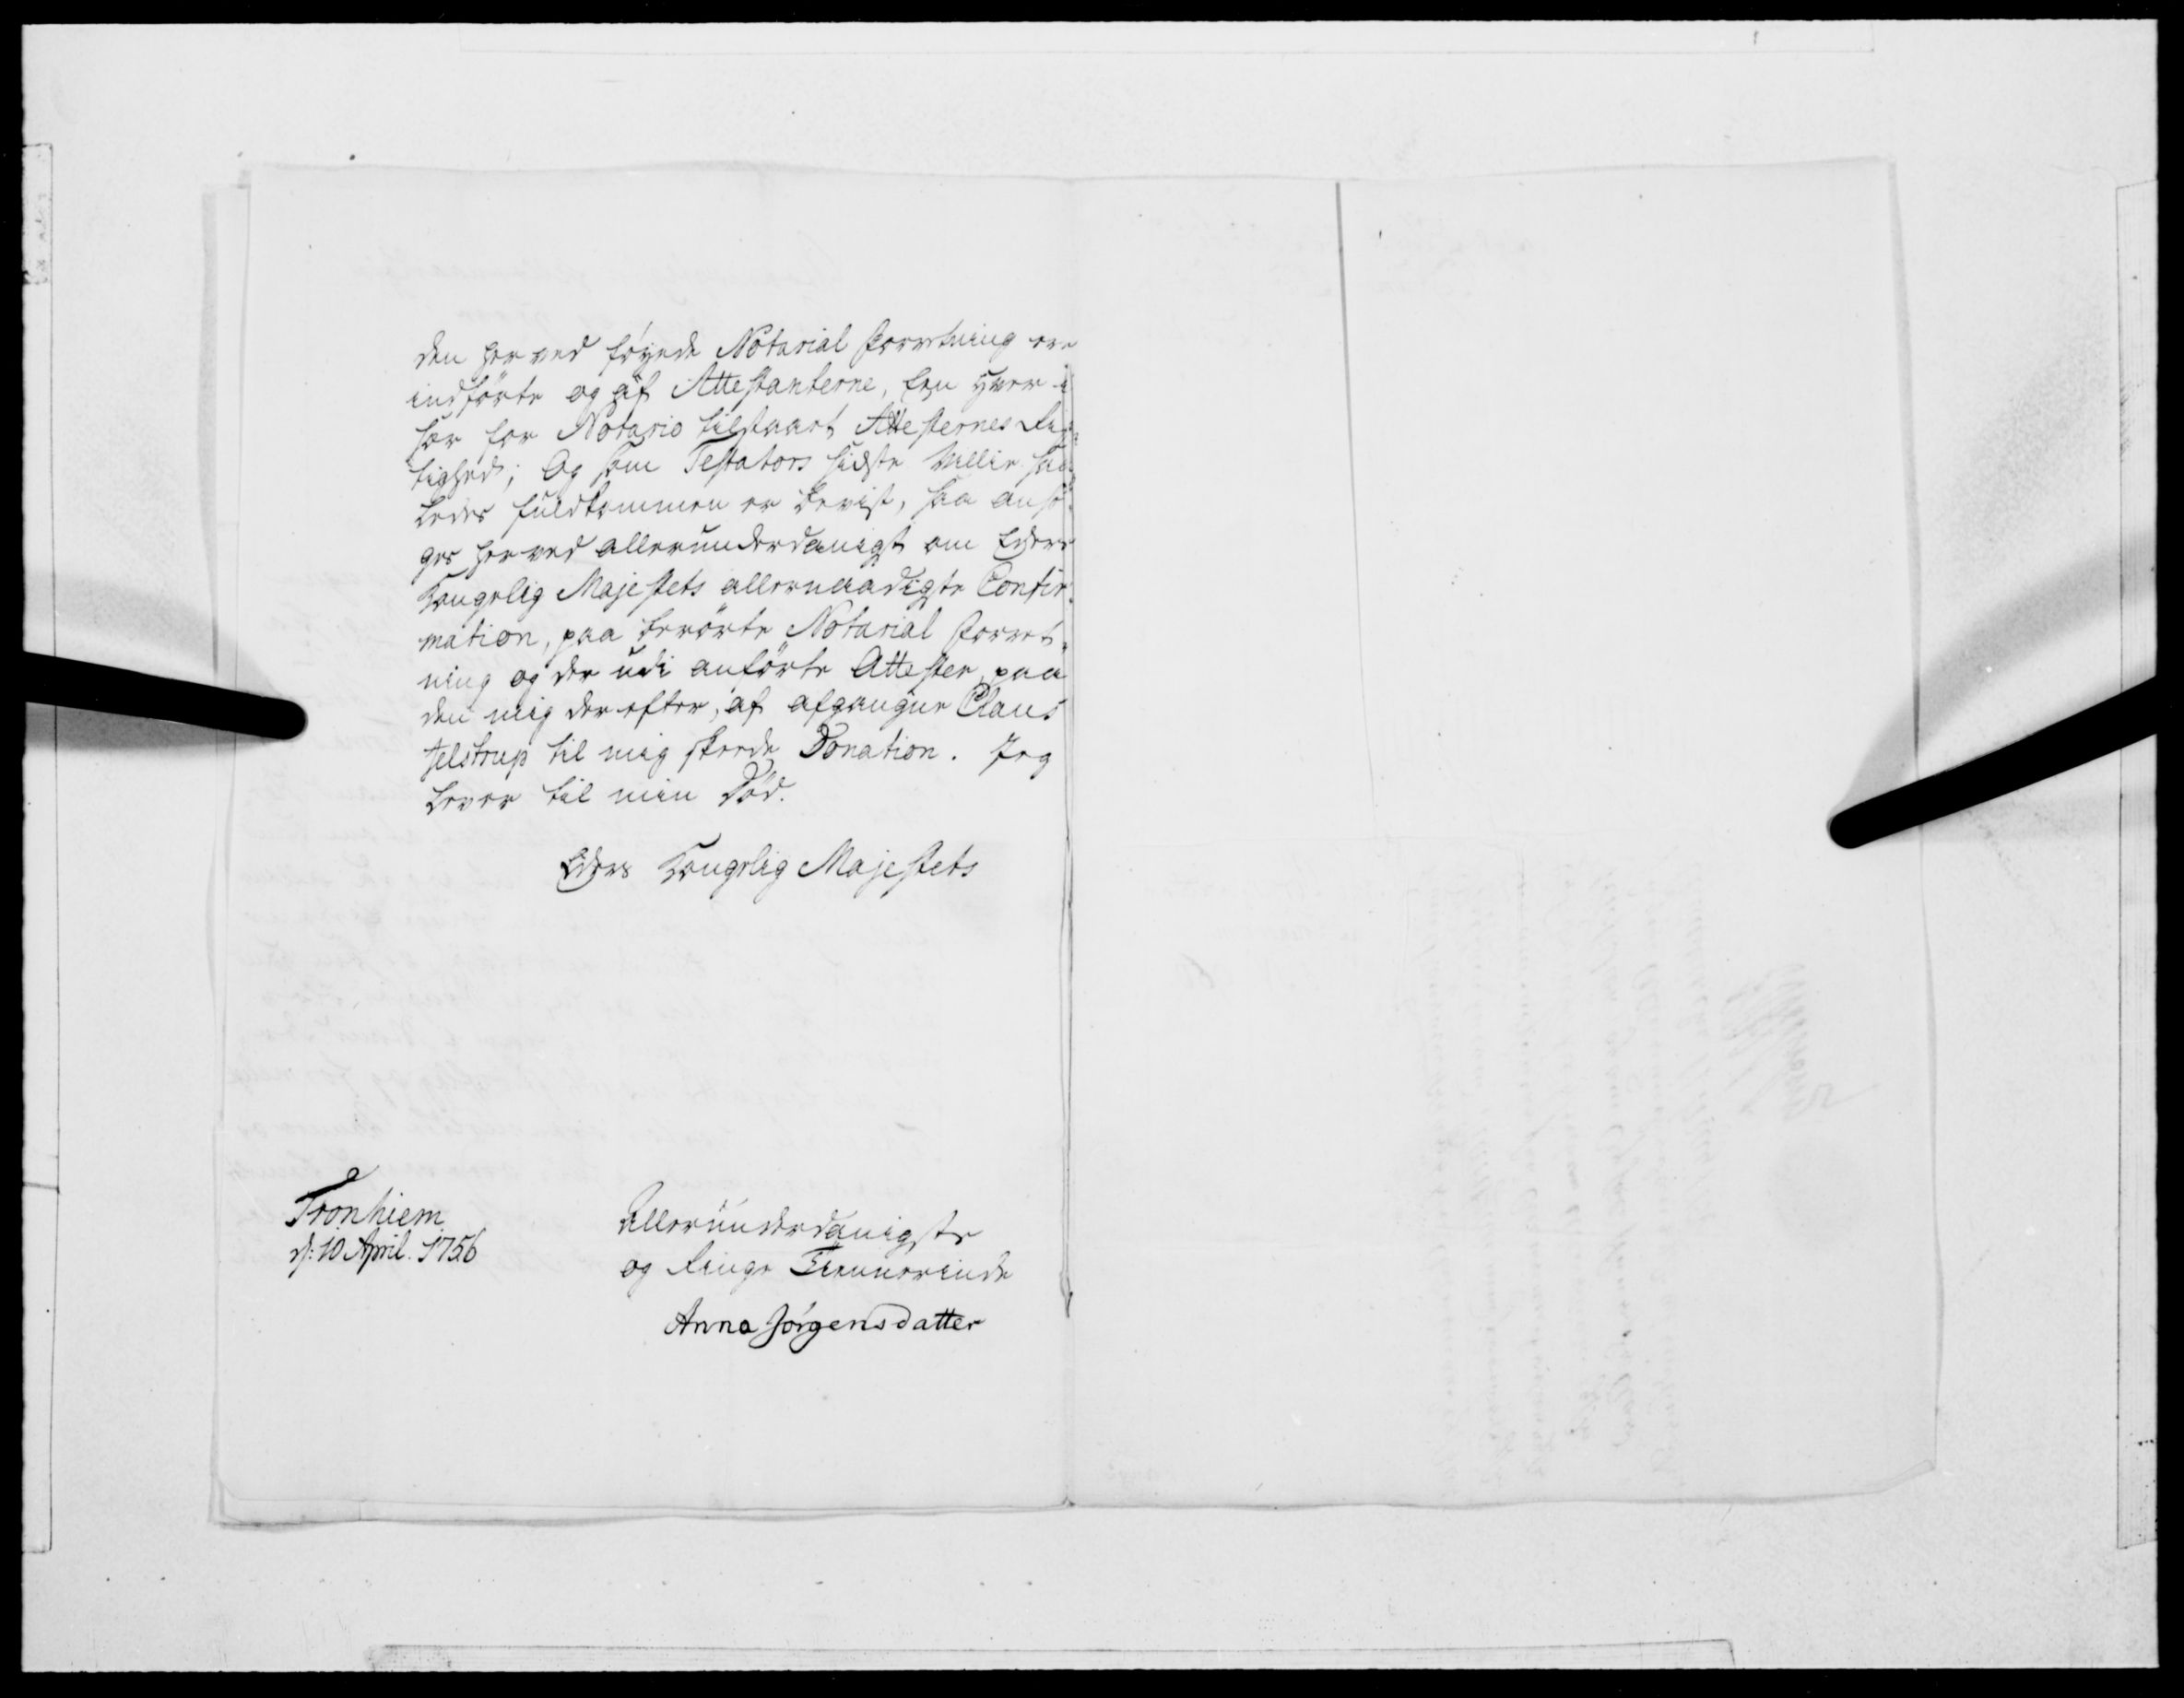 den her ved føyede Notarial Forretning ere
indførte og af Attestanterne, Een hver i
sær for Notario tilstaaet Attesternes Rig-
tighed; Og som Testators sidste Villie saa-
ledes fuldkommen er bevist, saa ansø-
ges herved allerunderdanigst om Eders
Kongelig Majestets allernaadigste Confir-
mation, paa berørte Notarial Forret-
ning og der udi anførte Attester, paa
den mig der efter, af afgangne Claus
Jelstrup til mig skeede Donation. Jeg
lever til min Død.
Eders Kongelig Majestets
Tronhiem
d: 10 April. 1756
allerunderdanigste
og ringe Tiennerinde
Anna Jørgensdatter